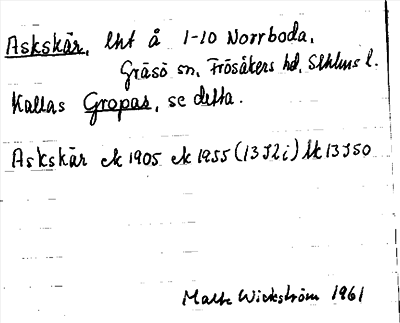 Askskär, lht å 1-10 Norrboda,
Gräsö sn, Frösåkers hd, Sthlms l.
Kallas Gropas, se detta.
Askskär ek 1905 ek 1955 (13 I 2 i) lk 13 I 50
Malte Wickström 1961